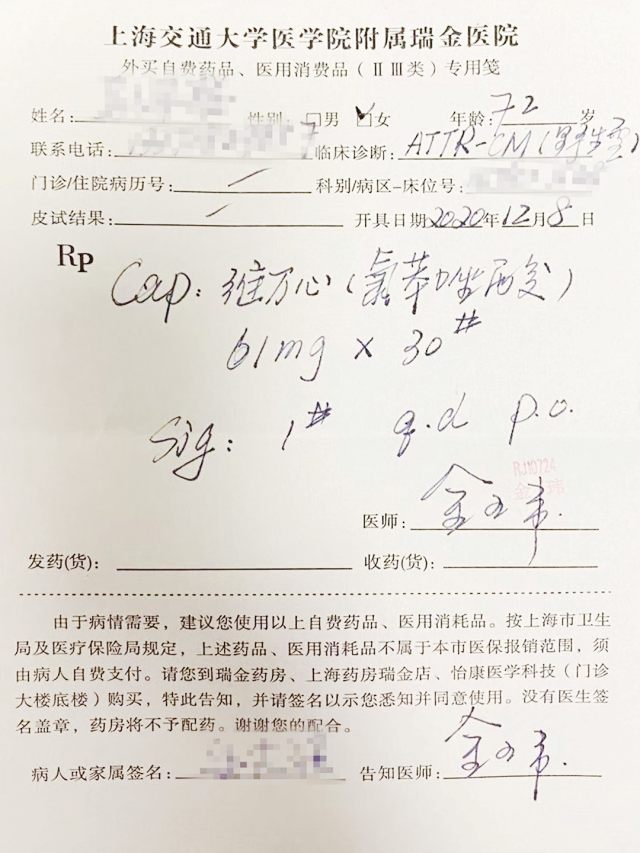 上海交通大学医学院附属瑞金医院
外买自费药品、医用消费品(ⅡⅢ类)专用笺
姓名: 性别:□男 ☑女 年龄:72岁
联系电话: 7 临床诊断:ATTR-CM(野生型)
门诊/住院病历号: 科别/病区-床位号:
皮试结果: 开具日期2020年12月8日
Rp
Cap: 维万心(氯苯唑酸)
61mg x 30#
Sig: 1# q.d p.o.
RJ10724
金玮
医师:金玮
发药(货): 收药(货):
由于病情需要,建议您使用以上自费药品、医用消耗品。按上海市卫生
局及医疗保险局规定,上述药品、医用消耗品不属于本市医保报销范围,须
由病人自费支付。请您到瑞金药房、上海药房瑞金店、怡康医学科技(门诊
大楼底楼)购买,特此告知,并请签名以示您悉知并同意使用。没有医生签
名盖章,药房将不予配药。谢谢您的配合。
病人或家属签名: 告知医师:金玮